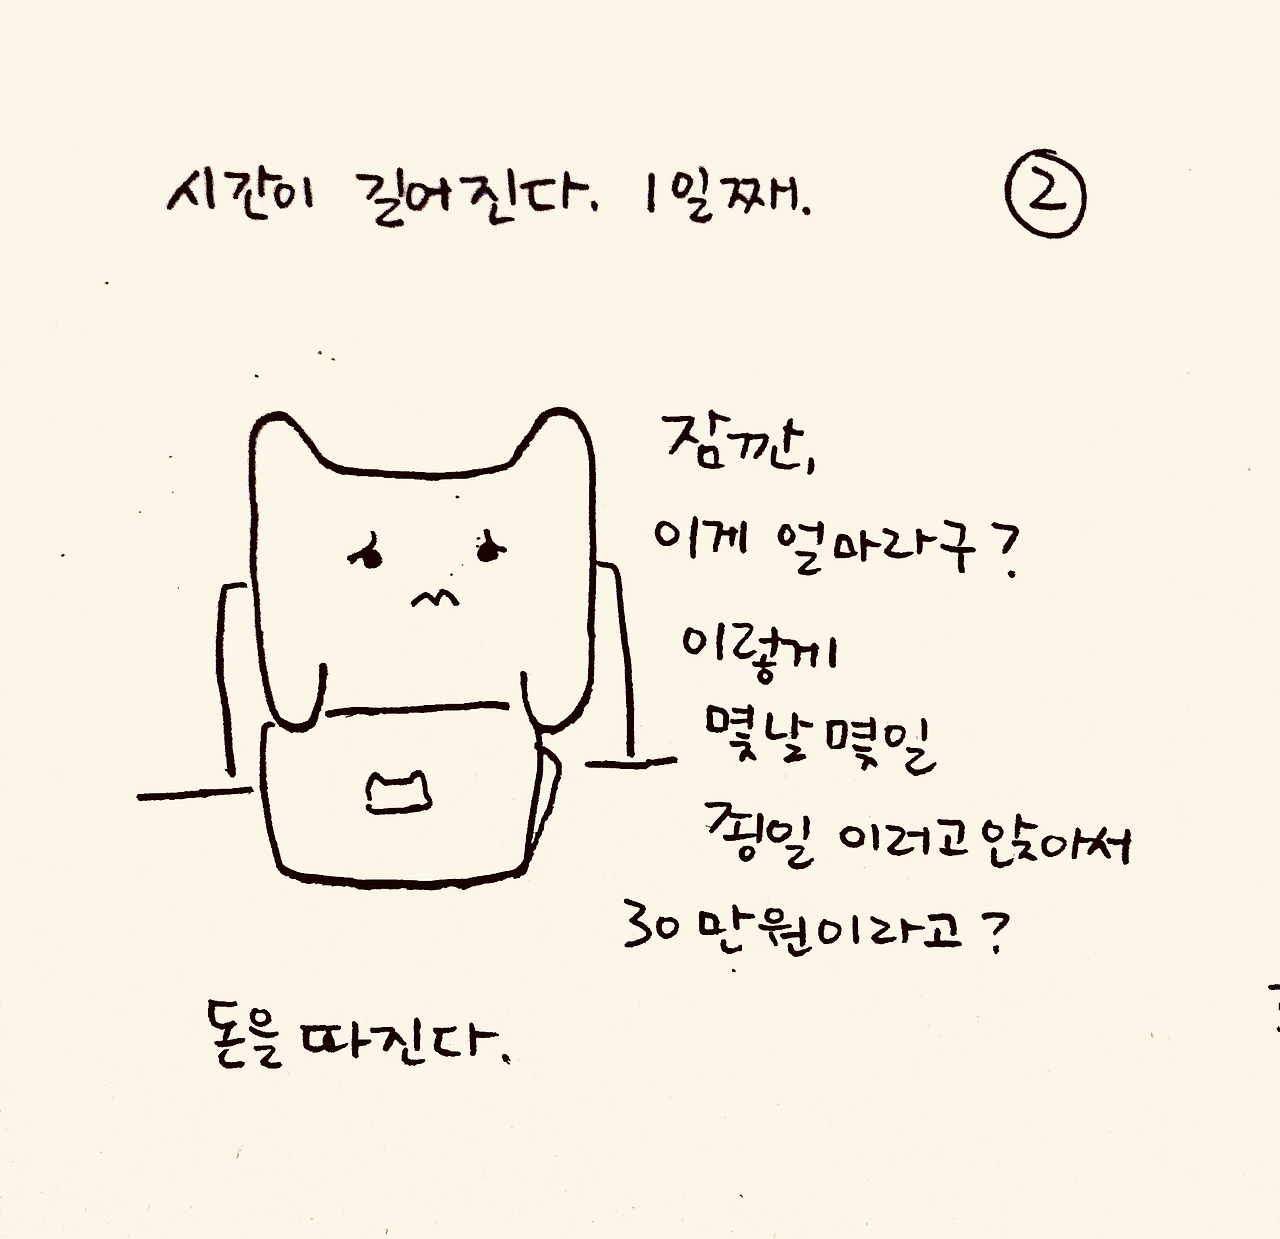 시간이 길어진다. 1일째.
②
잠깐,
이게 얼마라구?
이렇게
몇날 몇일
죙일 이러고 앉아서
30만원이라고?
돈을 따진다.